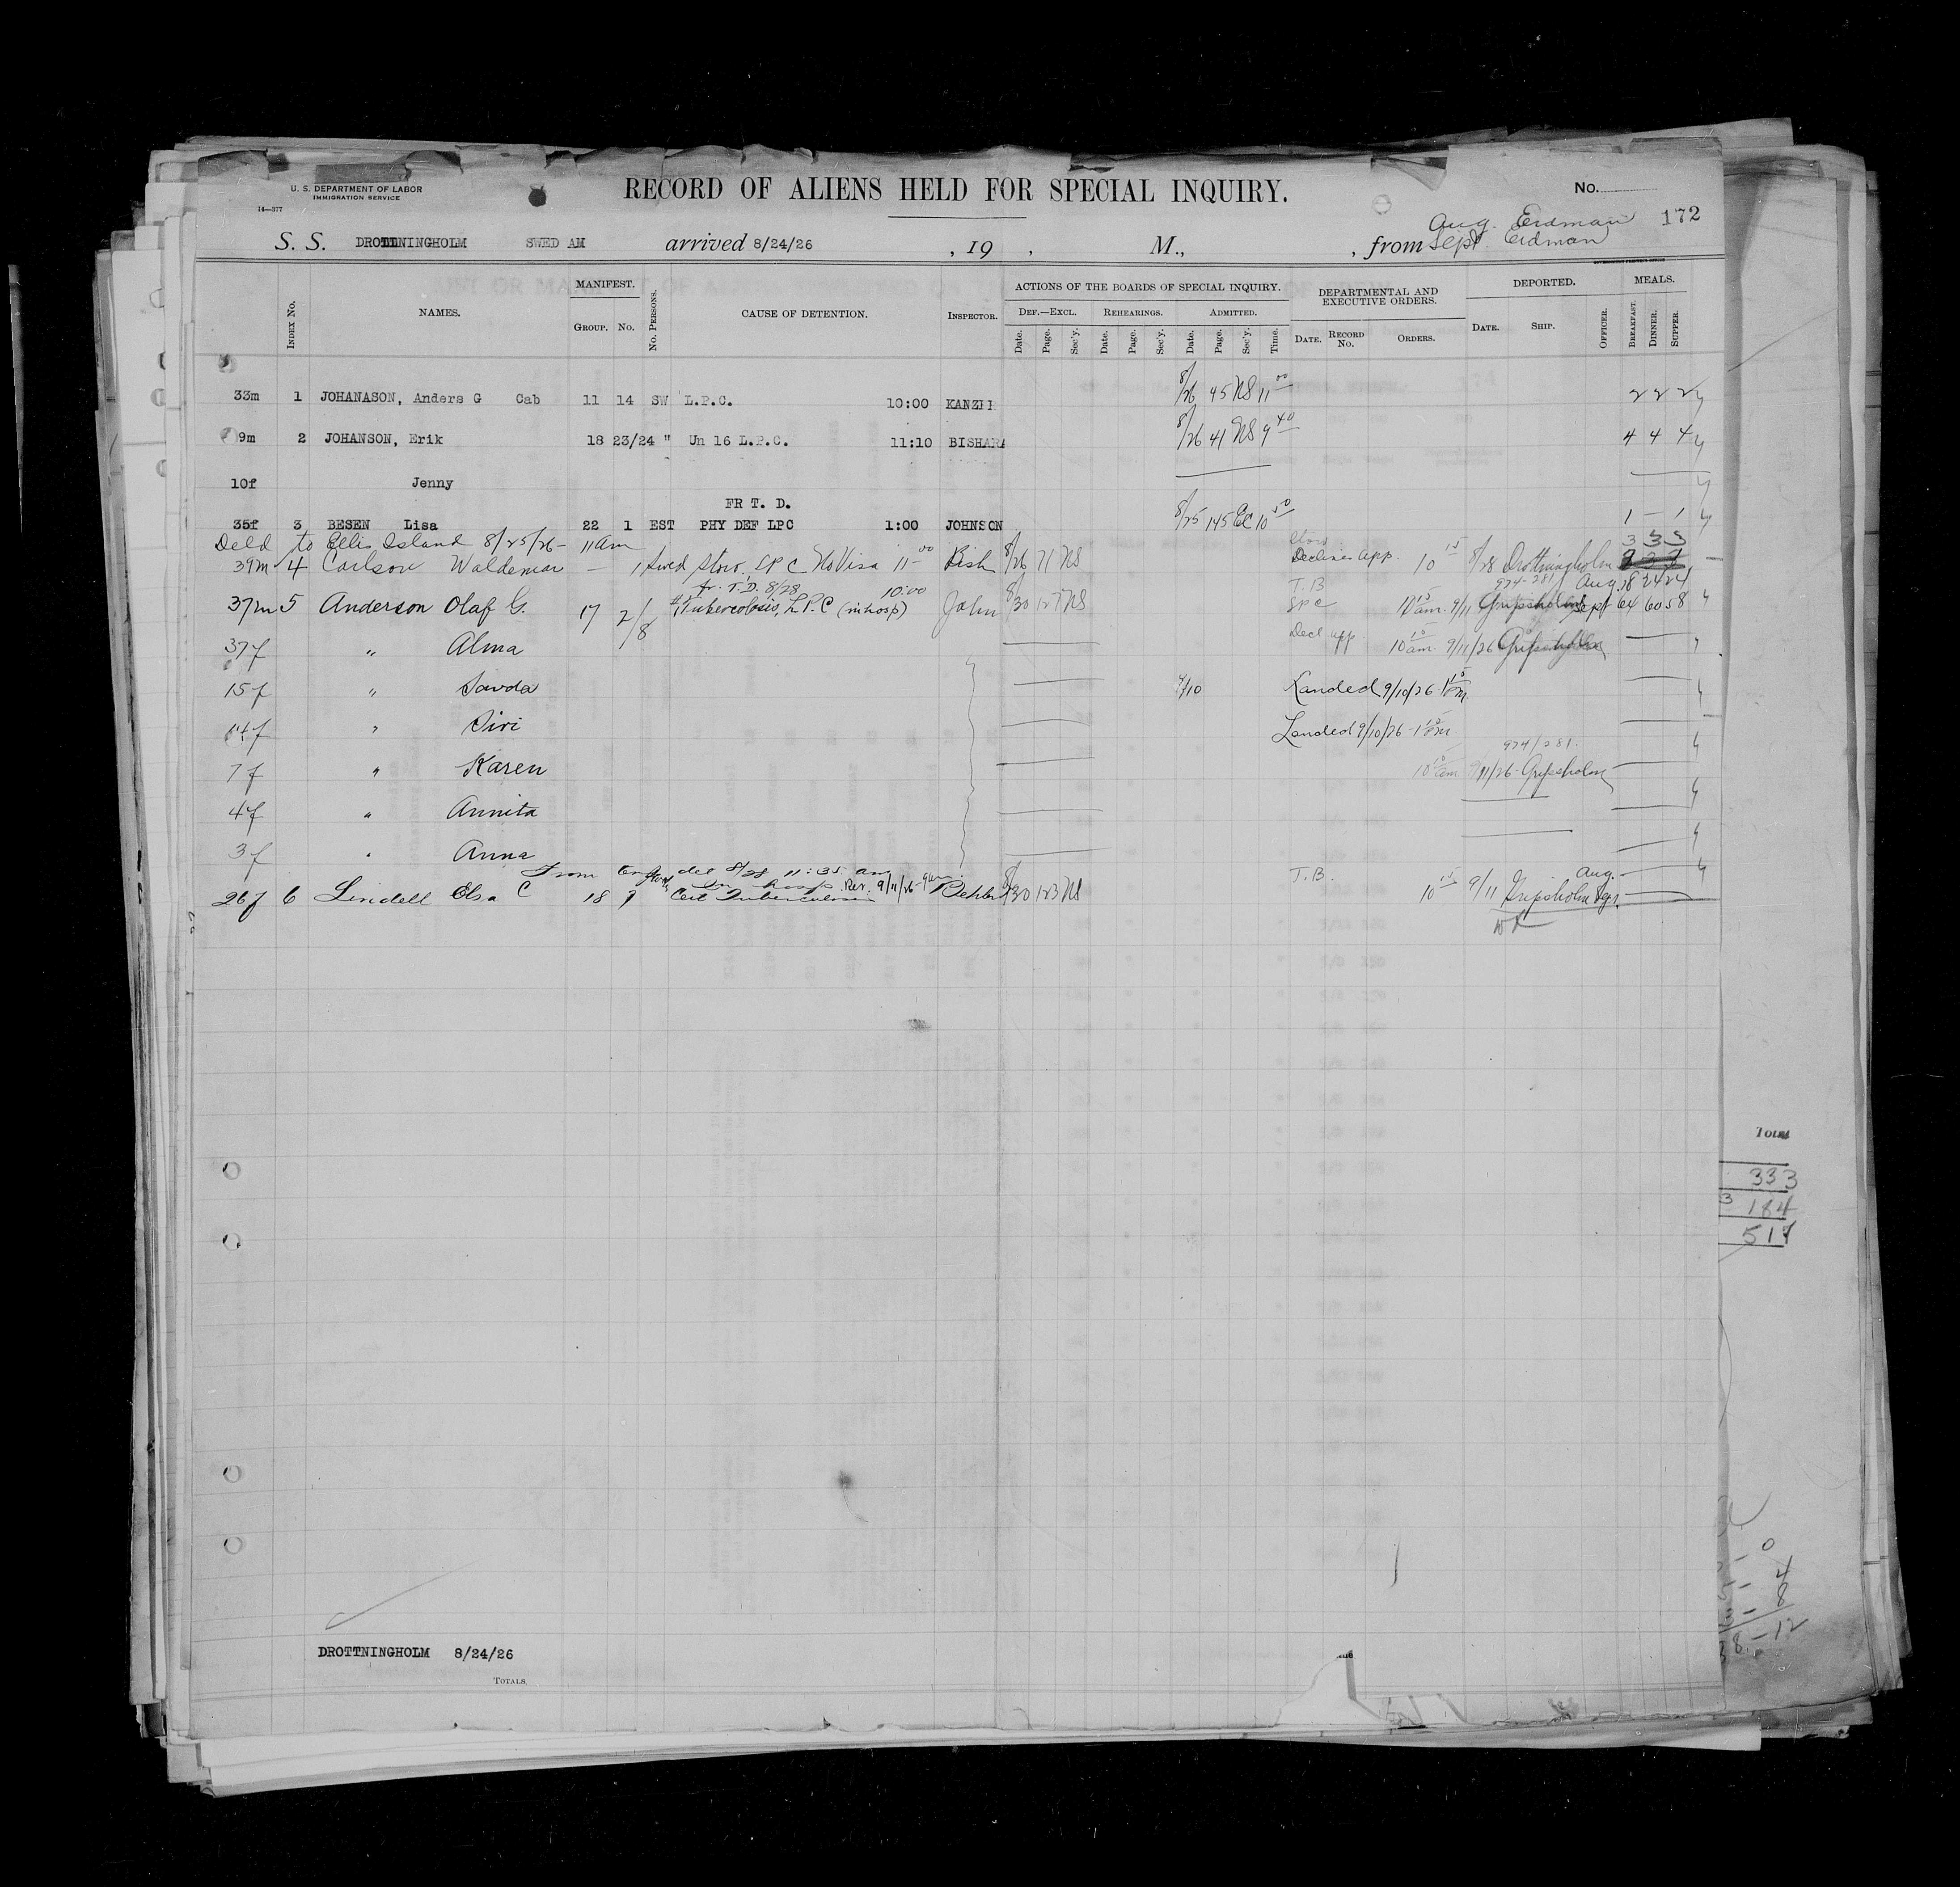 U. S. DEPARTMENT OF LABOR
IMMIGRATION SERVICE
14—377
RECORD OF ALIENS HELD FOR SPECIAL INQUIRY.
No.
172
Aug. Erdman
S. S. DROTTNINGHOLM SWED AM arrived 8/24/26 , 19 , M., , from Sept. Erdman
INDEX No. NAMES. MANIFEST. GROUP. No. No. PERSONS. CAUSE OF DETENTION. INSPECTOR. ACTIONS OF THE BOARDS OF SPECIAL INQUIRY. DEPARTMENTAL AND EXECUTIVE ORDERS. DEPORTED. MEALS.
DEF.—EXCL. REHEARINGS. ADMITTED.
Date. Page. Sec'y. Date. Page. Sec'y. Date. Page. Sec'y. Time. DATE. RECORD No. ORDERS. DATE. SHIP. OFFICER. BREAKFAST. DINNER. SUPPER.
33m 1 JOHANASON, Anders G Cab 11 14 SW L.P.C. 10:00 KANZEI 8/26 45 NS 11 00 2 2 2
9m 2 JOHANSON, Erik 18 23/24 " Un 16 L.P.C. 11:10 BISHARA 8/26 41 NS 9 40 4 4 4
10f Jenny
FR T. D.
35f 3 BESEN Lisa 22 1 EST PHY DEF LPC 1:00 JOHNSON 8/25 145 EC 10 50 1 — 1
Deld to Ellis Island 8/25/26 - 11 am
3 3 3
39m 4 Carlson Waldemar — 1 Swed Stow. LPC No Visa 11 00 Bish 8/26 71 NS Declines app. 10 15 8/28 Drottningholm
fr. T.D. 8/28 10:00 T.B 974-281 Aug. 18 24 24
37m 5 Anderson Olaf G. 17 2/8 Tuberculosis, L.P.C (in hosp) John 8/30 127 NS LPC 10 15 am. 9/11 Gripsholm Sept 64 60 58
37f " Alma Decl app 10 15 am. 9/11/26 Gripsholm
15f " 9/10 Landed 9/10/26 1 15 Pm
14f " Siri Landed 9/10/26 - 1 15 Pm
974/281.
7f " Karen 10 15 am 9/11/26 - Gripsholm
4f " Annita
3f " Anna
From del 8/28 11:35 am
In hosp. 9/11/26 Aug.
26f 6 Lindell Elsa C 18 7 Cert Tuberculosis 8/30 123 NS T.B. 10 15 9/11 Gripsholm
Total
333
184
517
DROTTNINGHOLM 8/24/26
TOTALS.